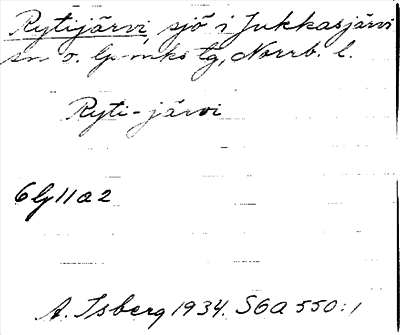 Rytijärvi, sjö i Jukkasjärvi
sn o. lpmks tg, Norrb. l.
Ryti-järvi
6lg11a2
A. Isberg 1934. SGA 550:1